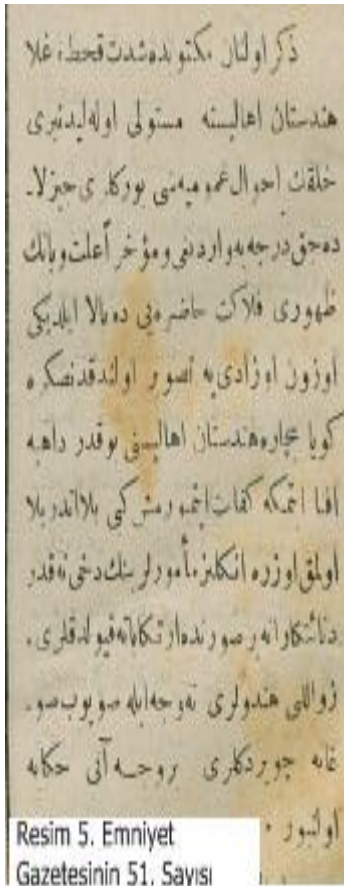 ذكر اولنان مكتوبده شدت قحط، غلا
هندستان اهاليسنه مستولى اوله ليدنبرى
خلقك احوال عموميه سنى يورك
ده حق درجه يه واردينى ومؤخراً علت وبانك
ظهورى فلاكت حاضره يى ده بالا ايلديكى
اوزون اوزادى يه تصوير اولندقدنصكره
كويا بيچاره هندستان اهاليسنى بوقدر داهيه
افنا ايتمكه كفايت ايتميورمش كبى بلا اندر بلا
اولمق اوزره انكليز مأمورلرينك دخى نه قدر
دنائتكارانه بر صورتده ارتكاباته قيولدقلرى،
زواللى هندولرى نه وجهله صويوب صو۔
غانه چويردكلرى بر وجه آتى حكايه
اولنيور.
Resim 5. Emniyet
Gazetesinin 51. Sayısı